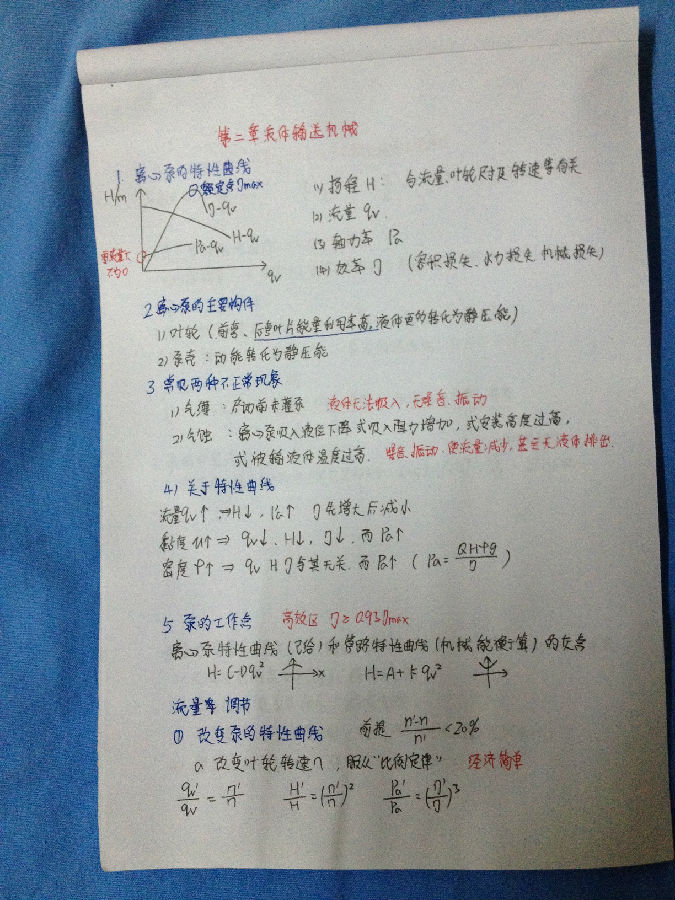 第二章流体输送机械
1. 离心泵的特性曲线
H/m
额定点ηmax
η-qv
H-qv
Pa-qv
qv
(1) 扬程 H: 与流量、叶轮尺寸及转速等有关
(2) 流量 qv.
(3) 轴功率 Pa
(4) 效率 η (容积损失、水力损失、机械损失)
2 离心泵的主要构件
1) 叶轮 (前弯、后弯叶片能量利用率高,液体更的转化为静压能)
2) 泵壳: 动能转化为静压能
3 常见两种不正常现象
1) 气缚: 启动前未灌泵 液体无法吸入,无噪音、振动
2) 气蚀: 离心泵吸入液位下降或吸入阻力增加,或安装高度过高,
或被输液体温度过高. 噪音、振动、使流量减少,甚至无液体排出.
4) 关于特性曲线
流量qv↑ ⇒H↓, Pa↑ η先增大后减小
黏度 u↑ ⇒ qv↓. H↓, η↓. 而 Pa↑
密度 ρ↑ ⇒ qv H η与其无关. 而 Pa↑ ( Pa= QHρg/η )
5 泵的工作点 高效区 η≥0.93ηmax
离心泵特性曲线 (已给) 和管路特性曲线 (机械能衡算) 的交点
H=C-Dqv² x H=A+kqv²
流量率 调节
① 改变泵的特性曲线 前提 n'-n/n' <20%
a 改变叶轮转速n, 服从“比例定律” 经济简单
qv'/qv = n'/n H'/H =(n'/n)² Pa'/Pa =(n'/n)³